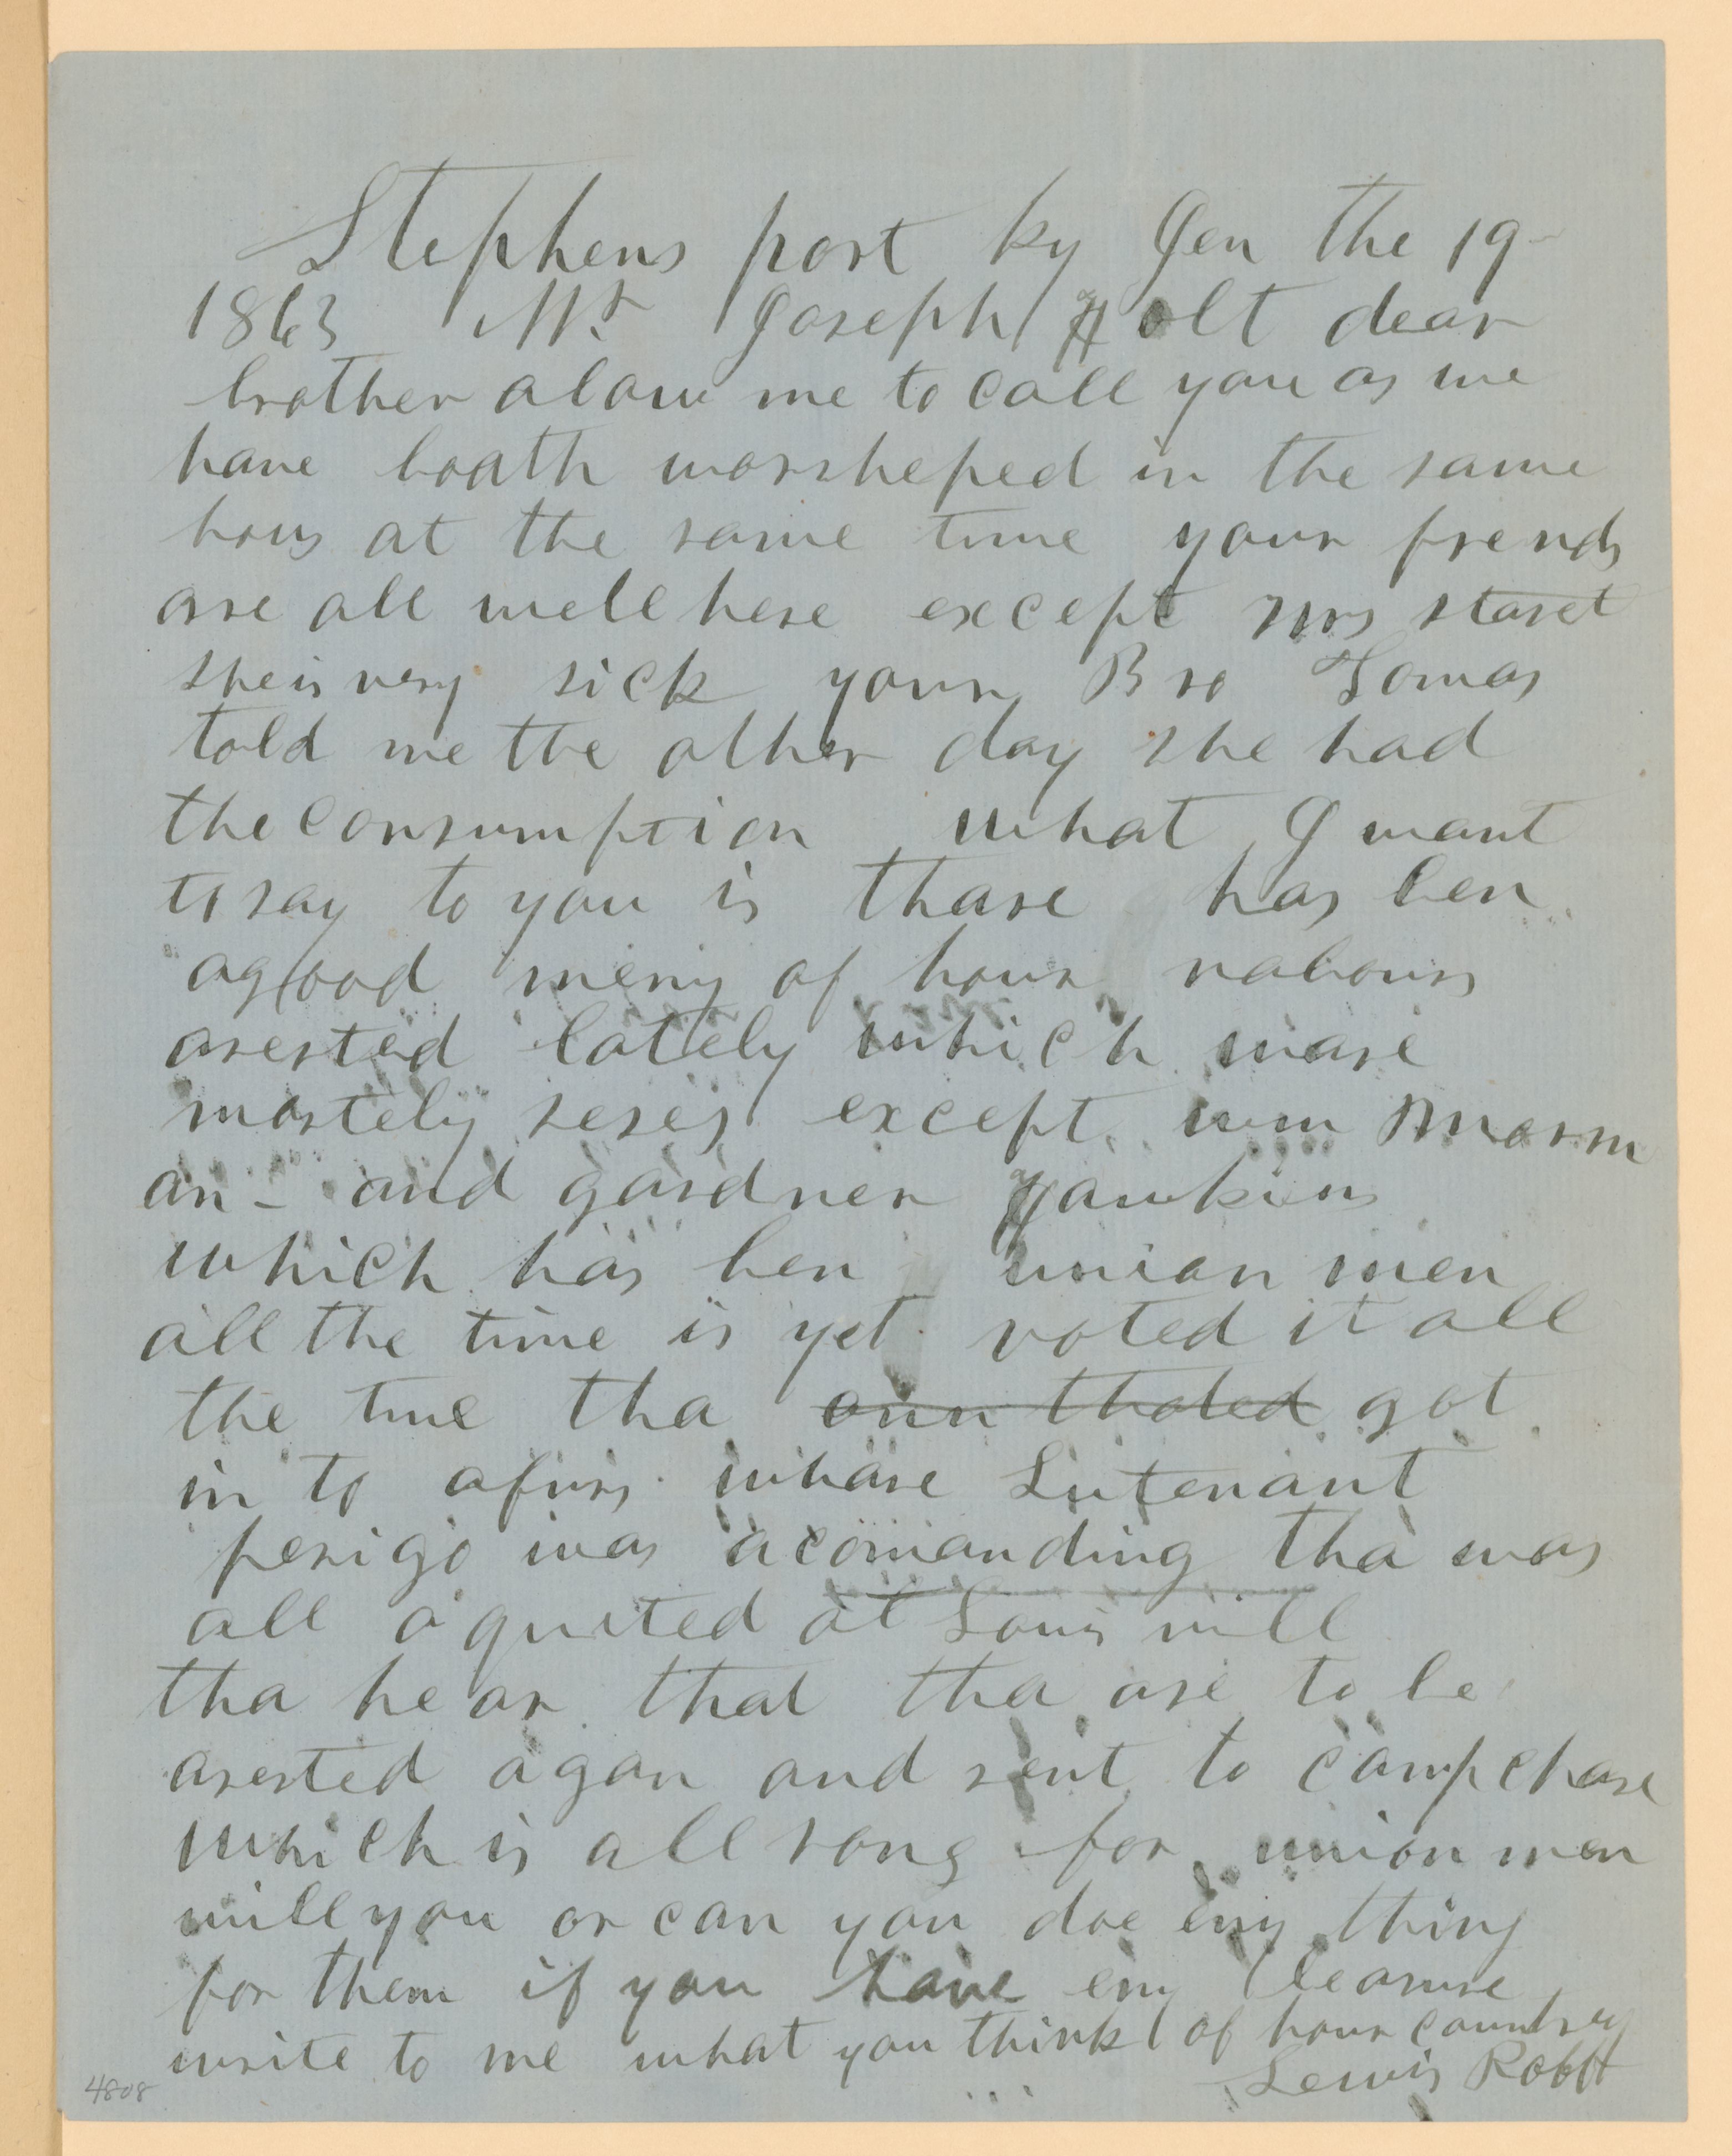 Stephens port ky Jen the 19
1863 Mr. Joseph Holt dear
brother alow me to call you as we
have boath worsheped in the same
hous at the same time your frends
are all well here except mrs
she is very sick your Bro Tomas
told me the other day she had
the consumption what I want
to say to you is thare has ben
a good meny of hour nabours
arested lately which ware
mostely seses except wm Morm
an - and gardner Hawkins
which has ben union men
all the time is yet voted it all
the time tha got
in to afuss whare Lutenant
perigo was acomanding tha was
all aquited at Louis vill
tha hear that tha are to be
arested agan and sent to camp chase
which is all rong for union men
will you or can you doe eny thing
for them if you have eny leasure
write to me what you think of hour country
Lewis Robtt
4808